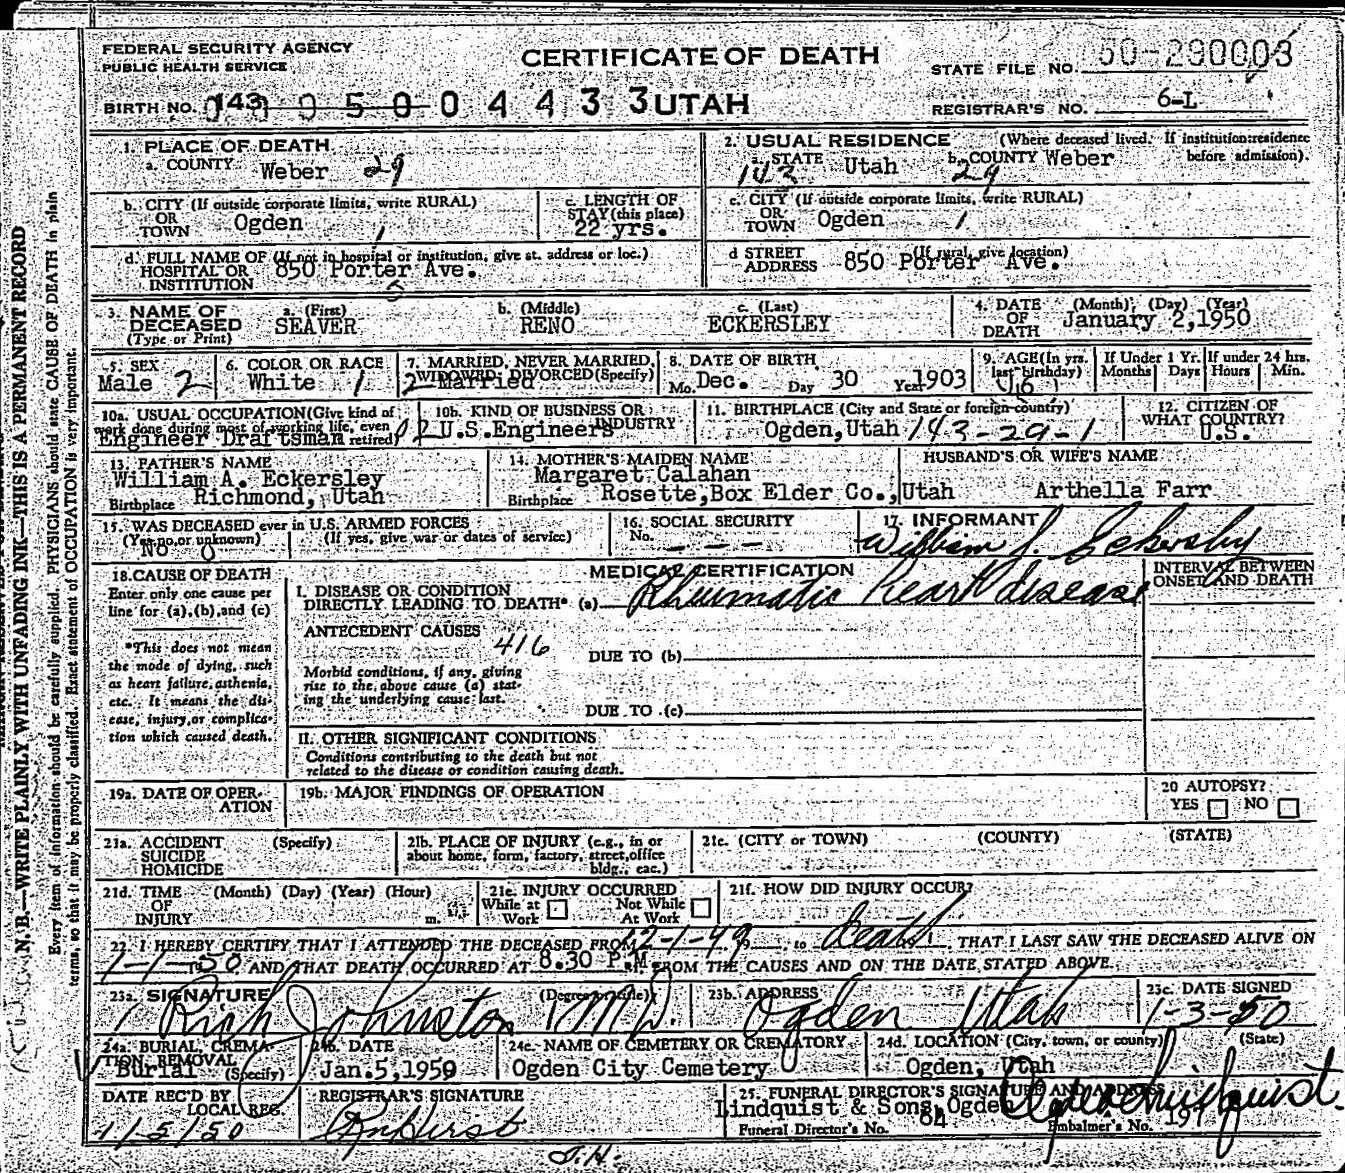 FEDERAL SECURITY AGENCY
PUBLIC HEALTH SERVICE
CERTIFICATE OF DEATH
STATE FILE NO. 50-290003
BIRTH NO. 143 9 5 0 0 4 4 3 3 UTAH
REGISTRAR'S NO. 6-L
1. PLACE OF DEATH
a. COUNTY Weber 29
2. USUAL RESIDENCE (Where deceased lived. If institution: residence before admission).
a. STATE Utah 143 b. COUNTY Weber 29
b. CITY (If outside corporate limits, write RURAL) OR TOWN Ogden 1
c. LENGTH OF STAY (this place) 22 yrs.
c. CITY (If outside corporate limits, write RURAL) OR TOWN Ogden 1
d. FULL NAME OF (If not in hospital or institution, give st. address or loc.) HOSPITAL OR INSTITUTION 850 Porter Ave.
5
d STREET ADDRESS (If rural, give location) 850 Porter Ave.
3. NAME OF DECEASED (Type or Print)
a. (First) SEAVER
b. (Middle) RENO
c. (Last) ECKERSLEY
4. DATE OF DEATH (Month) (Day) (Year) January 2,1950
5. SEX Male 2
6. COLOR OR RACE White 1
7. MARRIED, NEVER MARRIED, WIDOWED, DIVORCED (Specify) 2 Married
8. DATE OF BIRTH Mo. Dec. Day 30 Year 1903
9. AGE (In yrs. last birthday) 46
If Under 1 Yr. Months Days
If under 24 hrs. Hours Min.
10a. USUAL OCCUPATION (Give kind of work done during most of working life, even retired) Engineer Draftsman 02
10b. KIND OF BUSINESS OR INDUSTRY U.S.Engineers
11. BIRTHPLACE (City and State or foreign country) Ogden,Utah 143-29-1
12. CITIZEN OF WHAT COUNTRY? U.S.
13. FATHER'S NAME William A. Eckersley
Birthplace Richmond, Utah
14. MOTHER'S MAIDEN NAME Margaret Calahan
Birthplace Rosette,Box Elder Co.,Utah
HUSBAND'S OR WIFE'S NAME
Arthella Farr
15. WAS DECEASED ever in U.S. ARMED FORCES
(Yes, no, or unknown) (If yes, give war or dates of service)
No 0
16. SOCIAL SECURITY No. - - -
17. INFORMANT
William J. Eckersley
18. CAUSE OF DEATH
Enter only one cause per line for (a), (b), and (c)
*This does not mean the mode of dying, such as heart failure, asthenia, etc. It means the disease, injury, or complication which caused death.
MEDICAL CERTIFICATION
INTERVAL BETWEEN ONSET AND DEATH
I. DISEASE OR CONDITION DIRECTLY LEADING TO DEATH* (a) Rheumatic heart disease
ANTECEDENT CAUSES 416
Morbid conditions, if any, giving rise to the above cause (a) stating the underlying cause last.
DUE TO (b)
DUE TO (c)
II. OTHER SIGNIFICANT CONDITIONS
Conditions contributing to the death but not related to the disease or condition causing death.
19a. DATE OF OPERATION
19b. MAJOR FINDINGS OF OPERATION
20 AUTOPSY?
YES NO
21a. ACCIDENT SUICIDE HOMICIDE (Specify)
21b. PLACE OF INJURY (e.g., in or about home, form, factory, street, office bldg., eac.)
21c. (CITY or TOWN) (COUNTY) (STATE)
21d. TIME OF INJURY (Month) (Day) (Year) (Hour) m.
21e. INJURY OCCURRED
While at Work Not While At Work
21f. HOW DID INJURY OCCUR?
22. I HEREBY CERTIFY THAT I ATTENDED THE DECEASED FROM 12-1-49, to death, THAT I LAST SAW THE DECEASED ALIVE ON
1-1-50 AND THAT DEATH OCCURRED AT 8.30 P.M. FROM THE CAUSES AND ON THE DATE STATED ABOVE.
23a. SIGNATURE (Degree or title)
Rich Johnston M.D.
23b. ADDRESS
Ogden Utah
23c. DATE SIGNED
1-3-50
24a. BURIAL, CREMATION, REMOVAL (Specify) Burial
24b. DATE Jan.5,1950
24c. NAME OF CEMETERY OR CREMATORY Ogden City Cemetery
24d. LOCATION (City, town, or county) (State) Ogden, Utah
DATE REC'D BY LOCAL REG. 1/5/50
REGISTRAR'S SIGNATURE
25. FUNERAL DIRECTOR'S SIGNATURE AND ADDRESS
Lindquist & Sons, Ogden
Funeral Director's No. 84
Embalmer's No. 197
N.B.—WRITE PLAINLY WITH UNFADING INK—THIS IS A PERMANENT RECORD
Every item of information should be carefully supplied. PHYSICIANS should state CAUSE OF DEATH in plain
terms, so that it may be properly classified. Exact statement of OCCUPATION is very important.